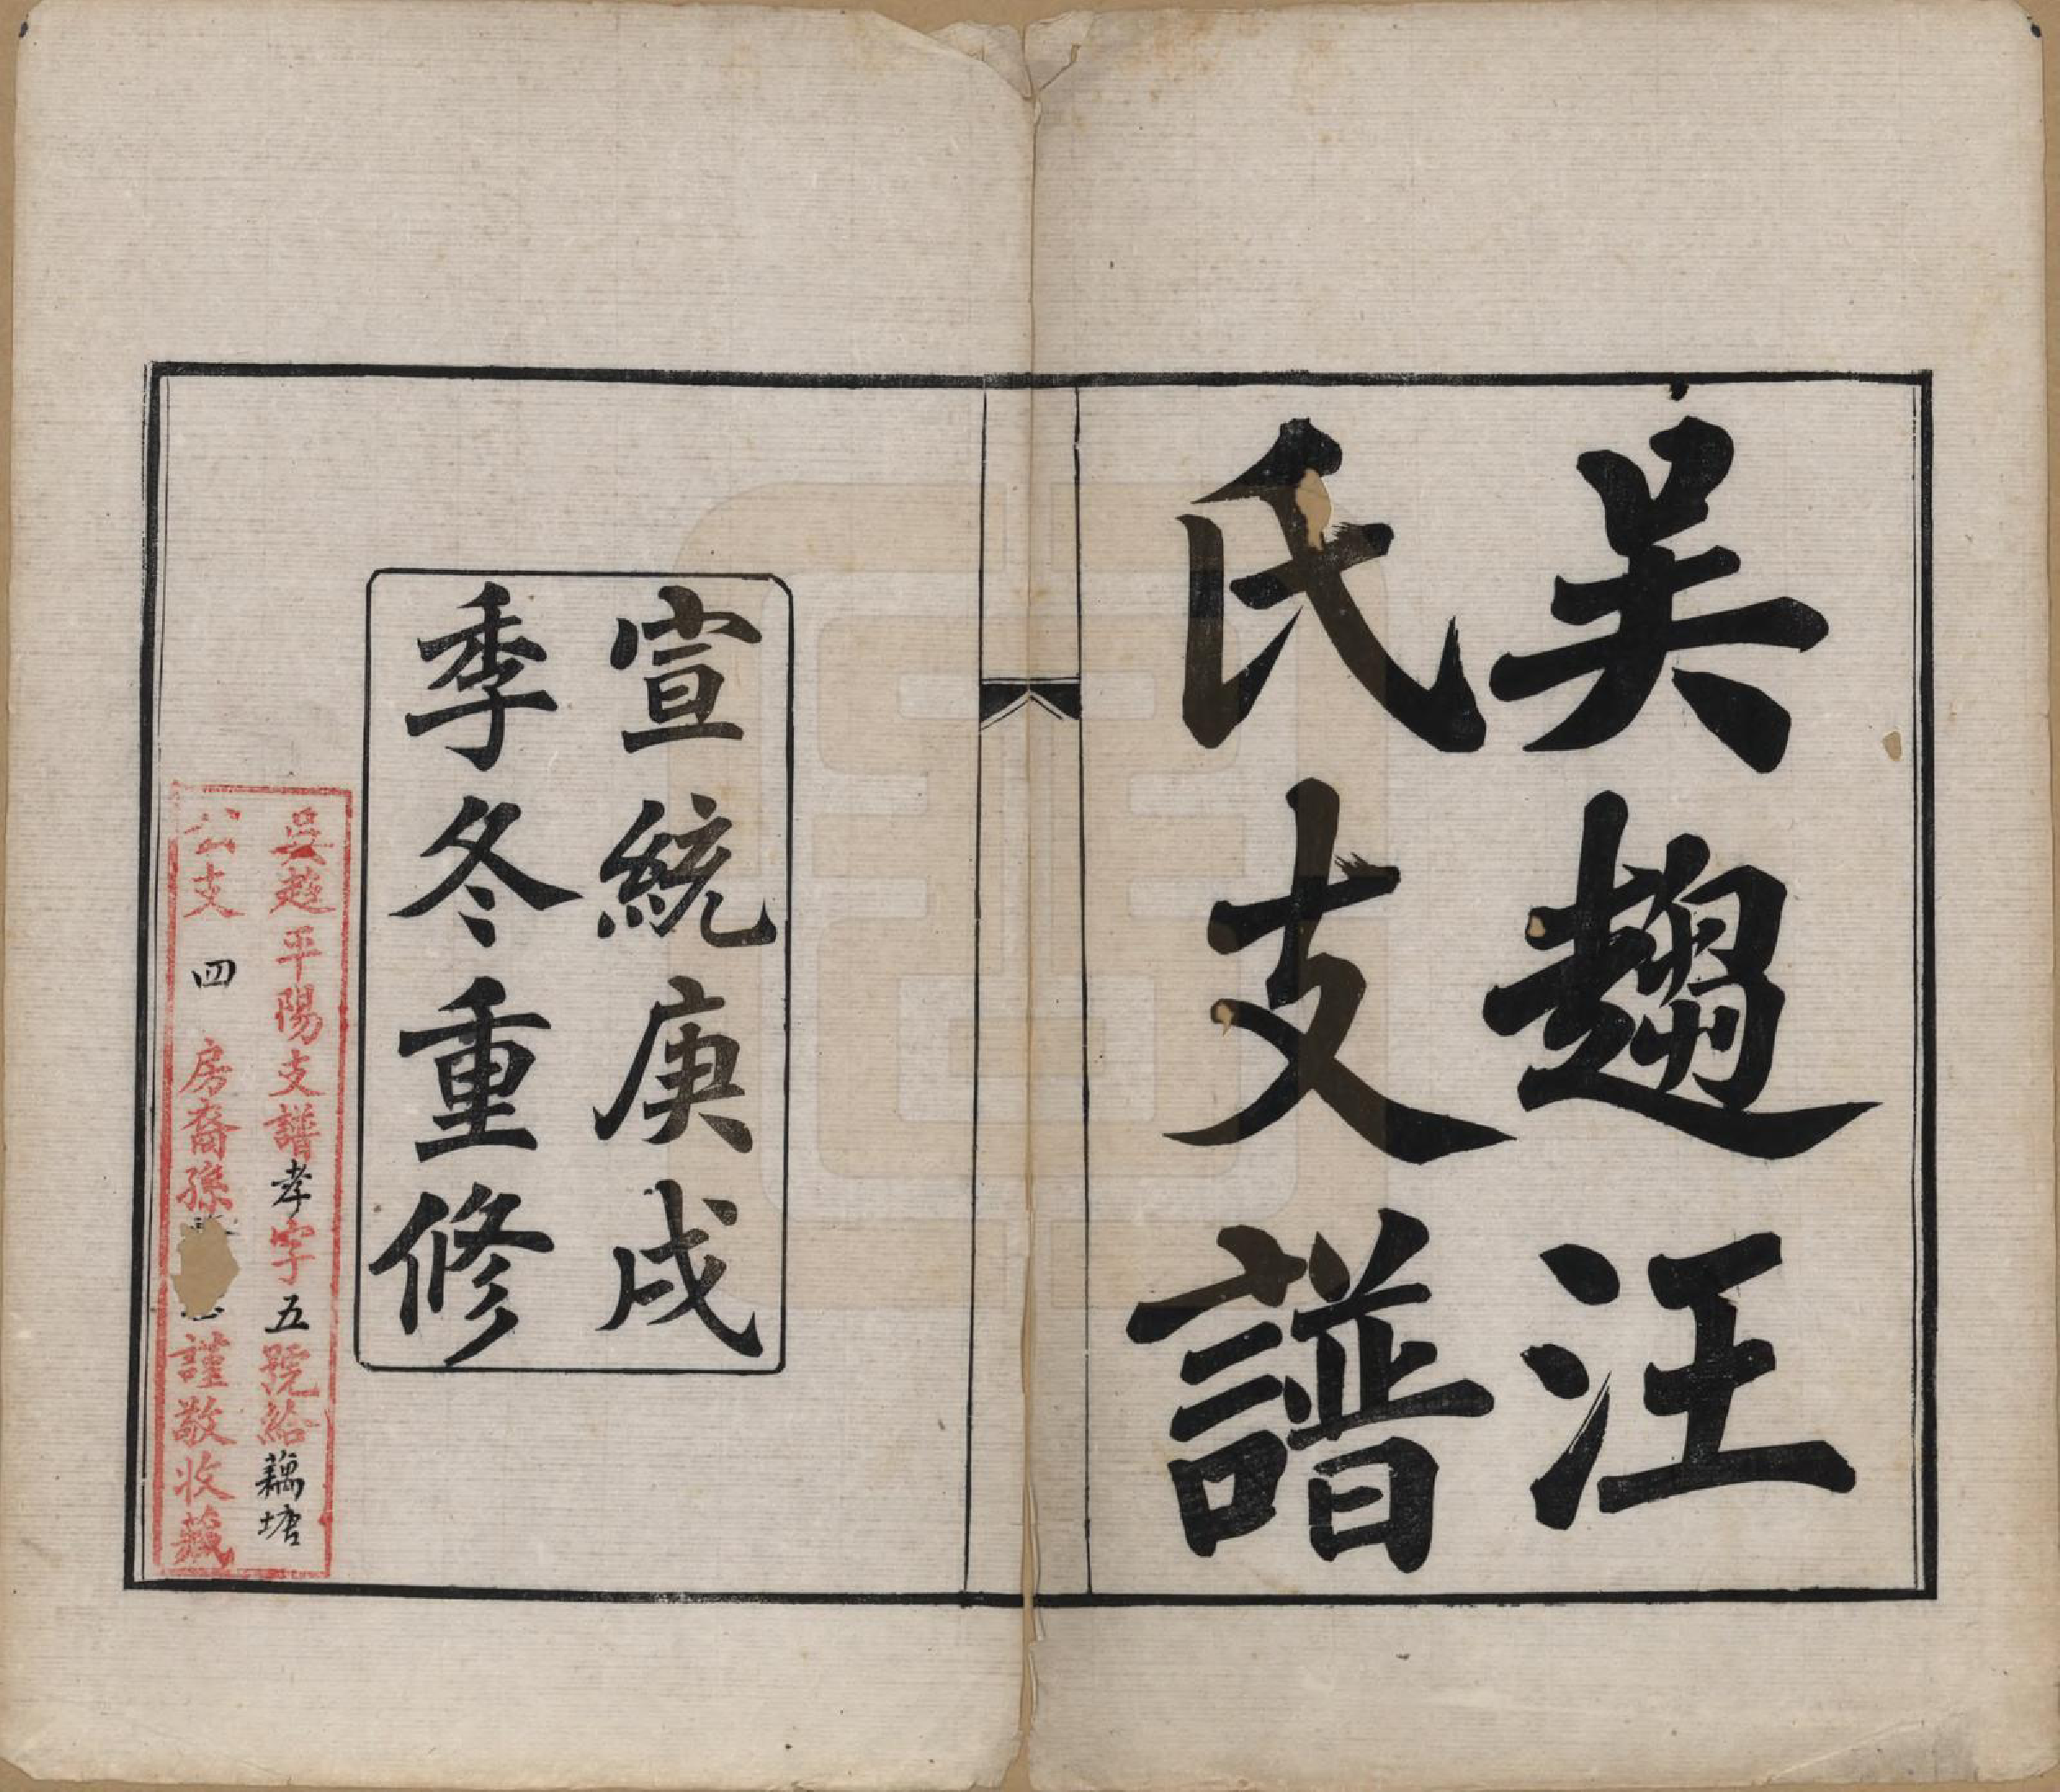 吳趨汪
氏支譜
宣統庚戌
季冬重修
吳趨平陽支譜孝字五號給藕塘
公支四房裔孫謹敬收藏